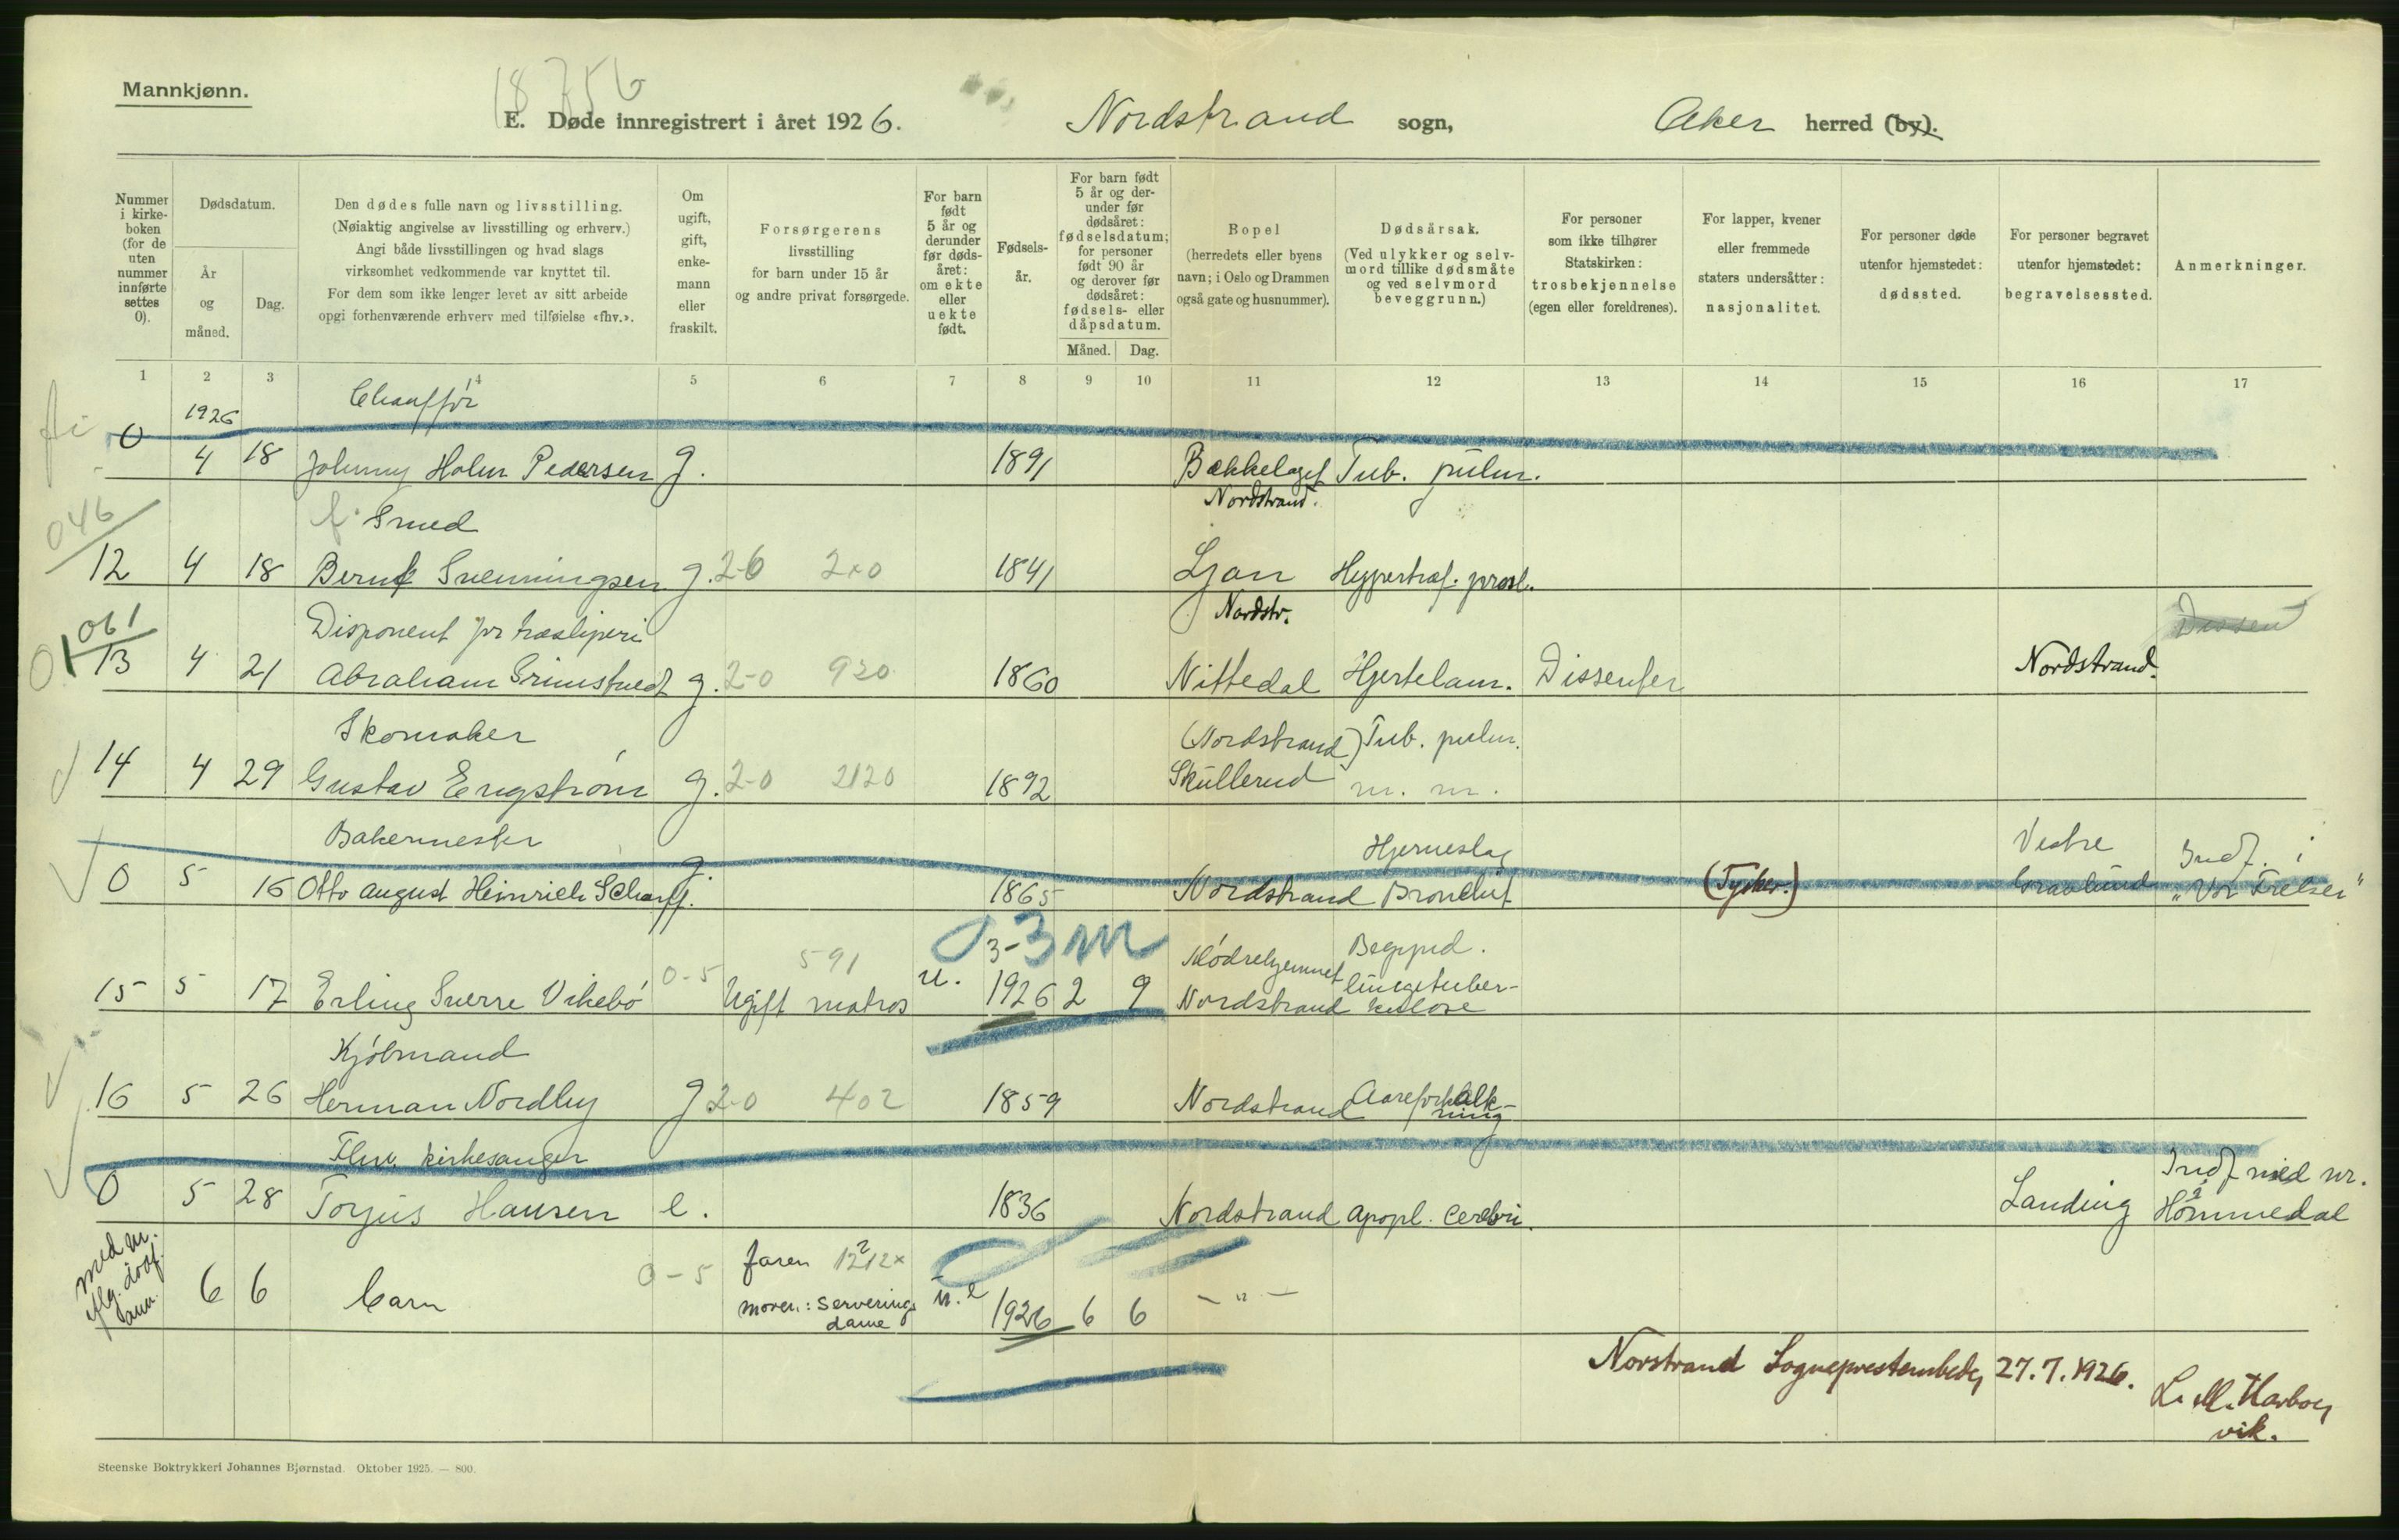 Mannkjønn.
18756
E. Døde innregistrert i året 1926. Nordstrand sogn, Aker herred (by).
Nummer i kirkeboken (for de uten nummer innførte settes 0).
Dødsdatum.
År og måned.
Dag.
Den dødes fulle navn og livsstilling.
(Nøiaktig angivelse av livsstilling og erhverv.)
Angi både livsstillingen og hvad slags
virksomhet vedkommende var knyttet til.
For dem som ikke lenger levet av sitt arbeide
opgi forhenværende erhverv med tilføielse «fhv.».
Om ugift, gift, enkemann eller fraskilt.
Forsørgerens
livsstilling
for barn under 15 år
og andre privat forsørgede.
For barn født 5 år og derunder før dødsåret: om ekte eller uekte født.
Fødselsår.
For barn født 5 år og derunder før dødsåret: fødselsdatum; for personer født 90 år og derover før dødsåret: fødsels- eller dåpsdatum.
Måned. Dag.
Bopel
(herredets eller byens
navn; i Oslo og Drammen
også gate og husnummer).
Dødsårsak.
(Ved ulykker og selvmord tillike dødsmåte og ved selvmord beveggrunn.)
For personer
som ikke tilhører
Statskirken:
trosbekjennelse
(egen eller foreldrenes).
For lapper, kvener
eller fremmede
staters undersåtter:
nasjonalitet.
For personer døde
utenfor hjemstedet:
dødssted.
For personer begravet
utenfor hjemstedet:
begravelsessted.
Anmerkninger.
1 2 3 4 5 6 7 8 9 10 11 12 13 14 15 16 17
1926 Chauffør
0 4 18 Johnny Holm Pedersen g. 1891 Bækkelaget Tub. pulm.
Nordstrand.
046 f. Smed
12 4 18 Bernt Svenningsen g. 2-0 2x0 1841 Ljan Hypertrof. prost.
Nordstr.
061 Disponent for træsliperi Dissent
13 4 21 Abraham Grimstvedt g. 2-0 920 1860 Nittedal Hjertelam. Dissenter Nordstrand.
Skomaker (Nordstrand) Tub. pulm.
14 4 29 Gustav Engstrøm g. 2-0 2120 1892 Skullerud m. m.
Bakermester Hjerneslag Vestre Indf. i
0 5 16 Otto August Heinrich Scharff g. 1865 Nordstrand Bronchit (Tysker.) Gravlund "Vor Frelser"
0 3-3 m
0-5 591 Mødrehjemmet Begynd.
15 5 17 Erling Sverre Vikebø Ugift matros u. 1926 2 9 Nordstrand lungetuberkulose
Kjøbmand
16 5 26 Herman Nordby g 2-0 402 1859 Nordstrand Aareforkalkning
Fhv. kirkesanger Indf med nr.
0 5 28 Torjus Hansen e. 1836 Nordstrand Apopl. cerebri. Landvig 2 Hommedal
med nr.
alg. dødf.
barn.
6 6 barn 0-5 faren 1212x
moren: Serverings
dame u. e 1926 6 6 — " —
Norstrand Sogneprestembede, 27.7.1926.
L. M. Harboe
vik.
Steenske Boktrykkeri Johannes Bjørnstad. Oktober 1925. — 800.